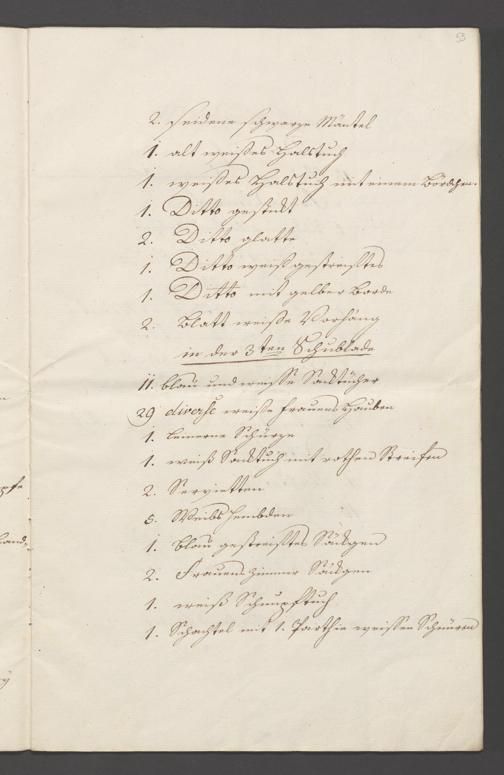 53
2. seidene schwarze Mäntel
1. alt weisses Halstuch
1. weisses Halstuch mit einem Bördchen.
1. Ditto gestickt
2. Ditto glatte
1. Ditto weiß gestreiftes
1. Ditto mit gelber Borde
2. Blatt weisse Vorhäng
in der 3ten Schublade
11. blau und weisse Sacktücher
29 diverse weisse Frauens Hauben
1. leinerne Schürze
1. weiß Sacktuch mit rothen Streifen
2. Servietten
5. Weibs Hembden
1. blau gestreiftes Säckgen
2. Frauenzimmer Säckgen
1. weiß Schnupftuch
1. Schachtel mit 1. Parthie weissen Schnüren